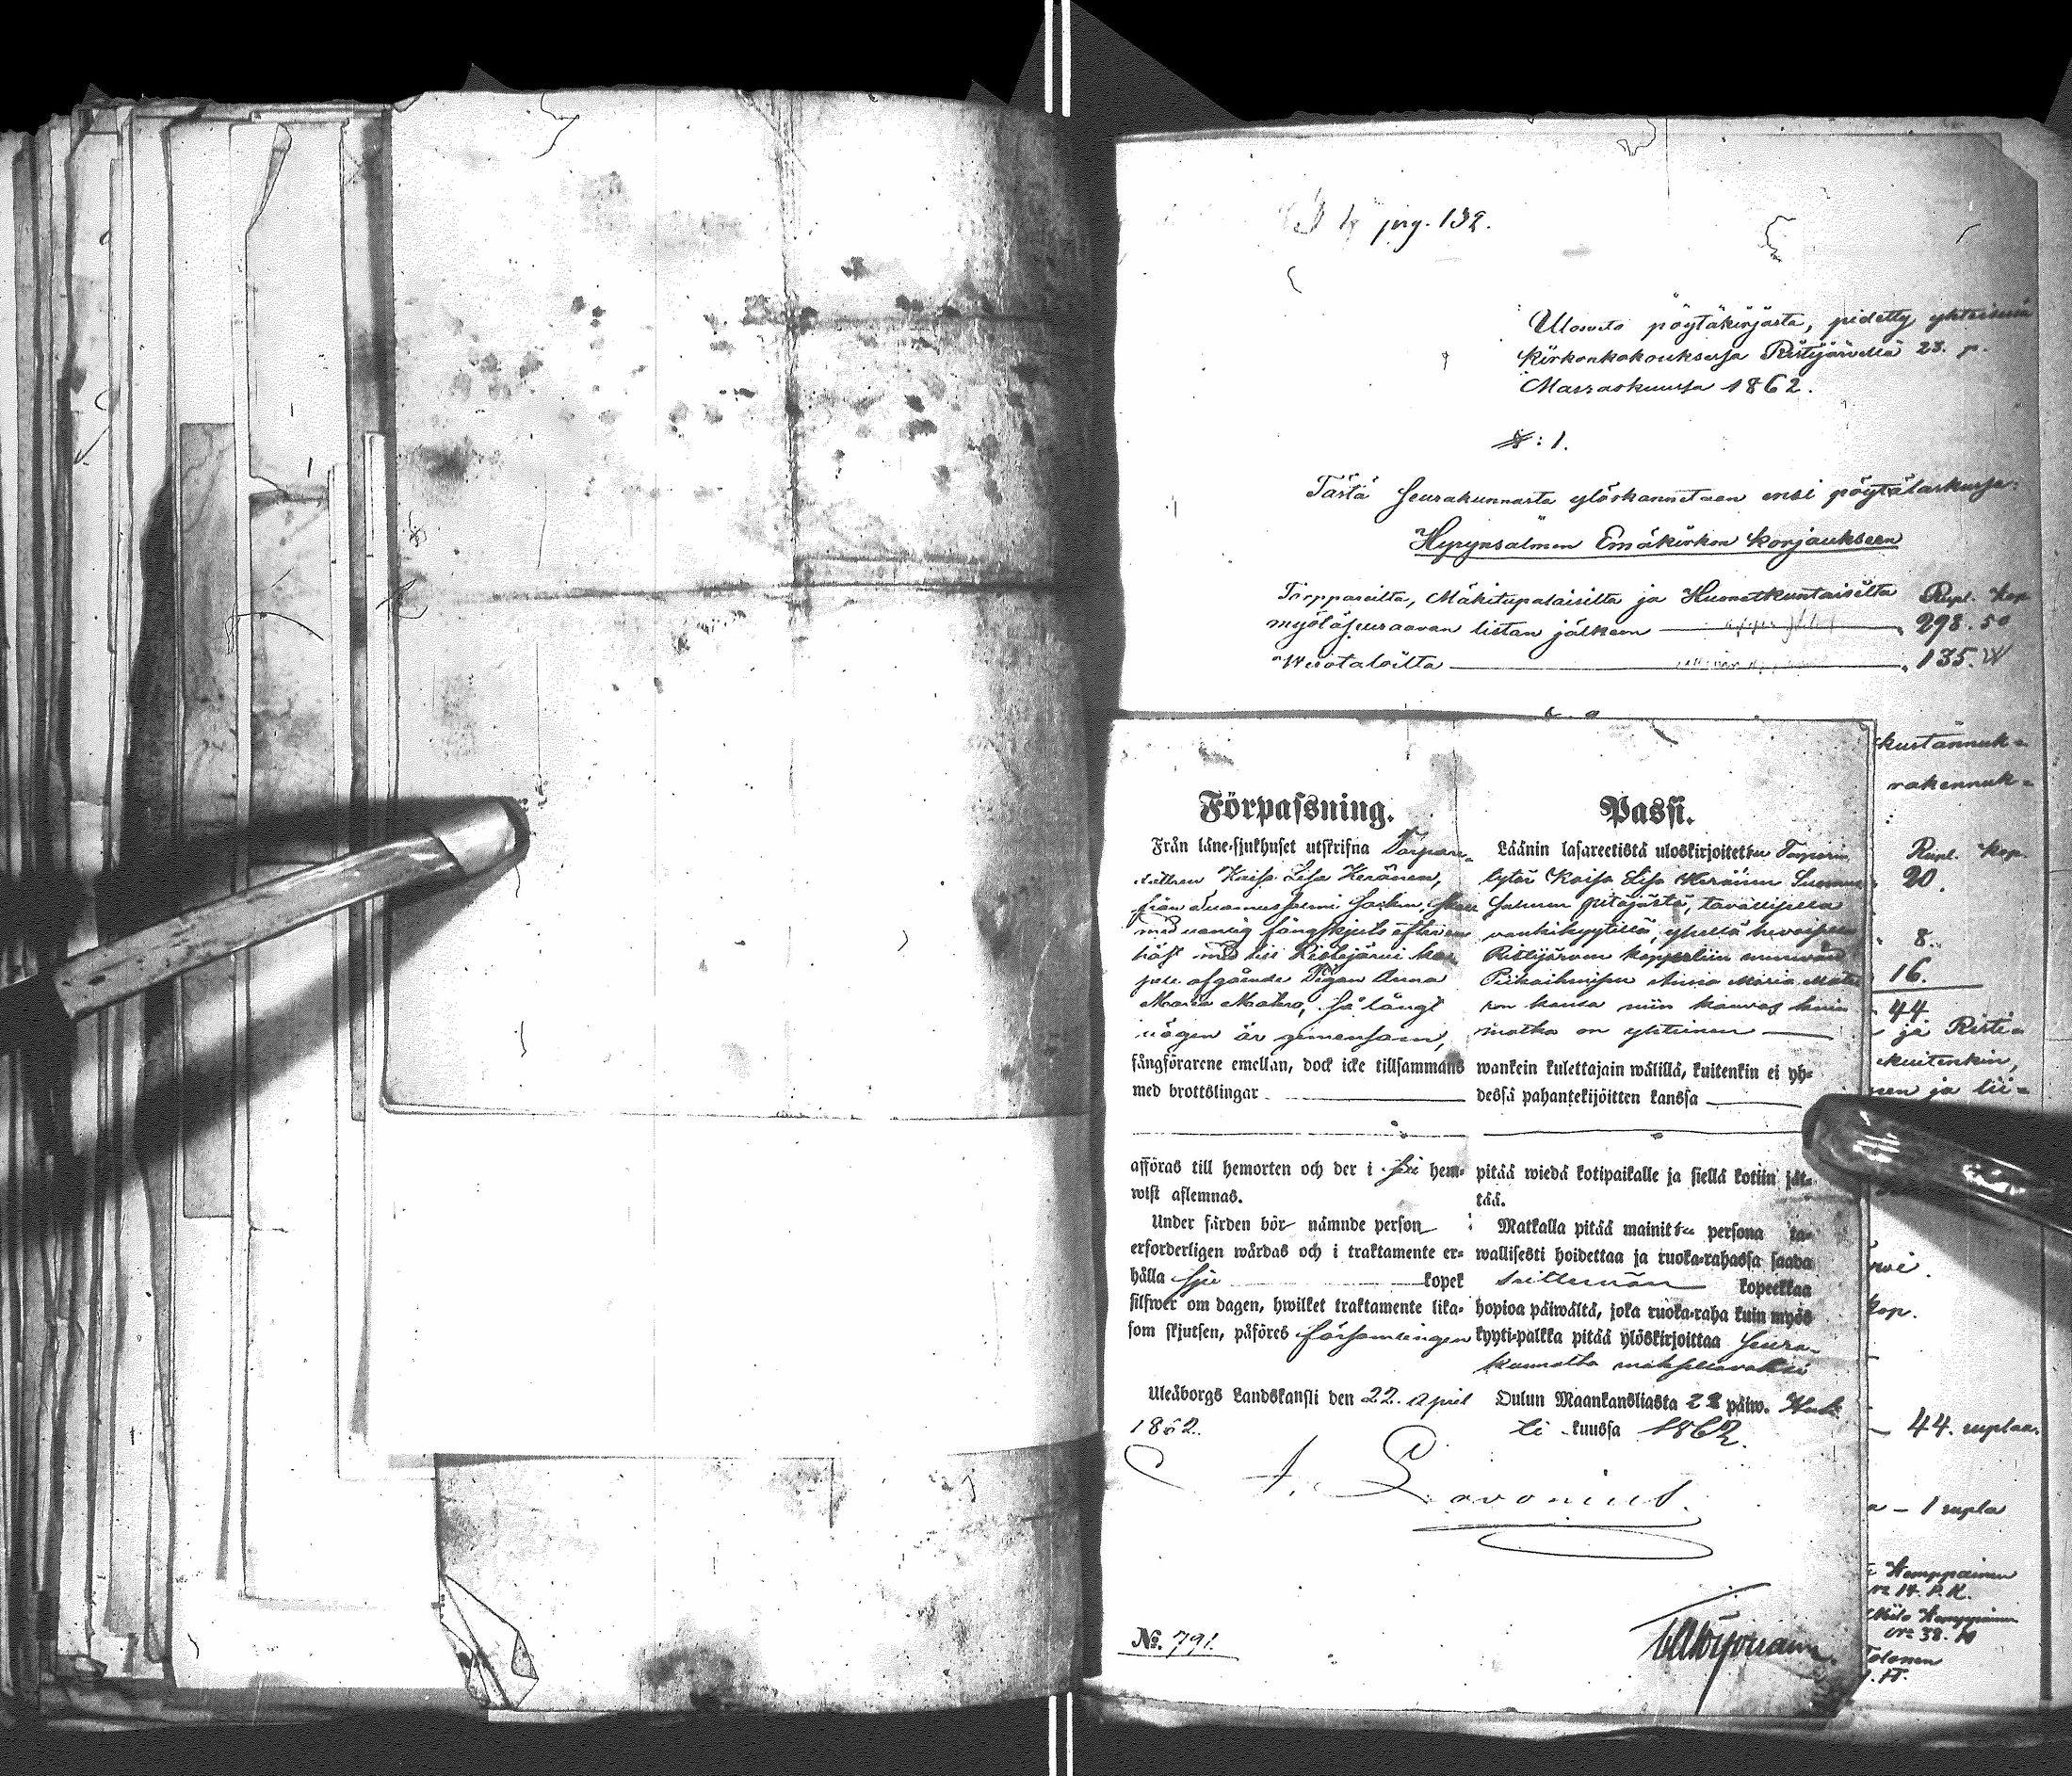 pag. 132.
Uloswito pöytäkirjasta, pidetty yhteisessä
Kirkonkokouksessa Ristijärvellä 23. p.
Marraskuussa 1862.
§: 1.
Tästä Seurakunnasta ylöskannetaan ensi pöytälaskussa:
Hyrynsalmen Emäkirkon korjaukseen
Torppareilta, Mäkitupalaisilta ja Huonetkuntaisilta Rupl. Kop
myötäseuraavan listan jälkeen 298. 50
Werotaloilta 135.
kustannuk=
rakennuk=
Rupl. Kop.
20.
8.
16.
44
ja Risti=
kuitenkin,
nen ja lii=
Kop.
44. ruplaa.
1 rupla
Kemppainen
No 14. P.K.
Kemppainen
No 38.
Tolonen
Förpassning.
Från läne-sjukhuset utskrifna Torpare-
dottren Kaisa Lisa Keränen,
från Suomussalmi Socken,
med vanlig fångskjuts efter en
häst med till Ristijärvi ka-
pell afgående Pigan Anna
Maria Matero, så långt
vägen är gemensam,
fångförarene emellan, dock icke tillsammans
med brottslingar
afföras till hemorten och der i sin hem-
wist aflemnas.
Under färden bör nämnde person
erforderligen wårdas och i traktamente er-
hålla sju kopek
silfwer om dagen, hwilket traktamente lika-
som skjutsen, påföres församlingen
Uleåborgs Landskansli den 22. April
1862.
Passi.
Läänin lasareetistä uloskirjoitettu Torparin
tytär Kaisa Lisa Keränen Suomus
salmen pitäjästä, tavallisella
vankikyytillä, yhellä hevoisella
Ristijärven kappeliin menevän
Piikaihmisen Anna Maria Mate
ron kansa niin kauvas kuin
matka on yhteinen
wankein kulettajain wälillä, kuitenkin ei yh-
dessä pahantekijöitten kanssa
pitää wiedä kotipaikalle ja siellä kotiin jät-
tää.
Matkalla pitää mainittu persona ta-
wallisesti hoidettaa ja ruoka-rahassa saada
seittemän kopeekkaa
hopioa päiwältä, joka ruoka-raha kuin myös
kyyti-palkka pitää ylöskirjoittaa Seura-
kunnalta maksettavaksi
Oulun Maankansliasta 22 päiw. Huh
ti kuussa 1862.
A. Lavonius.
No. 791.